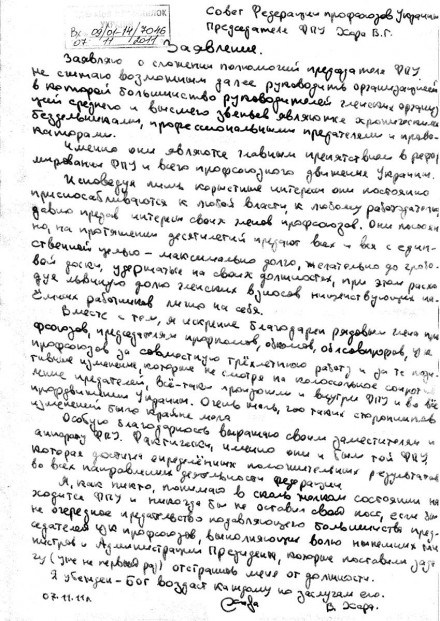 Совет Федерации профсоюзов Украины
Председателя ФПУ Хара В.Г.
Вх 09/01-14/7046
07 11 2011
Заявление.
Заявляю о сложении полномочий председателя ФПУ
не считаю возможным далее руководить организацией
в которой большинство руководителей членских организа-
ций среднего и высшего звеньев являются хроническими
бездельниками, профессиональными предателями и прово-
каторами.
Именно они являются главным препятствием в рефор
мировании ФПУ и всего профсоюзного движения Украины.
Исповедуя лишь корыстные интересы они постоянно
приспосабливаются к любой власти, к любому работодателю
давно предав интересы своих членов профсоюзов. Они
но, на протяжении десятилетий предают всех и вся с един-
ственной целью – максимально долго, желательно до гробо-
вой доски, удержаться на своих должностях, при этом расхо
дуя львиную долю членских взносов нищенствующих на-
ёмных работников лично на себя.
Вместе с тем, я искренне благодарен рядовым членам про
фсоюзов, председателям профкомов, обкомов, облсовпрофов, ЦК
профсоюзов за совместную трёхлетнюю работу и за те пози-
тивные изменения, которые не смотря на колоссальное сопротив
ление предателей, всё-таки произошли и внутри ФПУ и во всём
профдвижении Украины. Очень жаль, что таких сторонников
изменений было крайне мало
Особую благодарность выражаю своим заместителям и
аппарату ФПУ. Фактически, именно они и были той ФПУ
которая достигла определённых положительных результатов
во всех направлениях деятельности федерации.
Я, как никто, понимаю в сколь полном состоянии на
ходится ФПУ и никогда бы не оставил свой пост, если бы
не очередное предательство подавляющего большинства пред-
седателей ЦК профсоюзов, выполняющих волю нынешних
нистров и Администрации Президента, которые поставили зада
чу (уже не первый раз) отстранить меня от должности.
Я убежден – Бог воздаст каждому по заслугам его.
07.11.11г.
В. Хара.